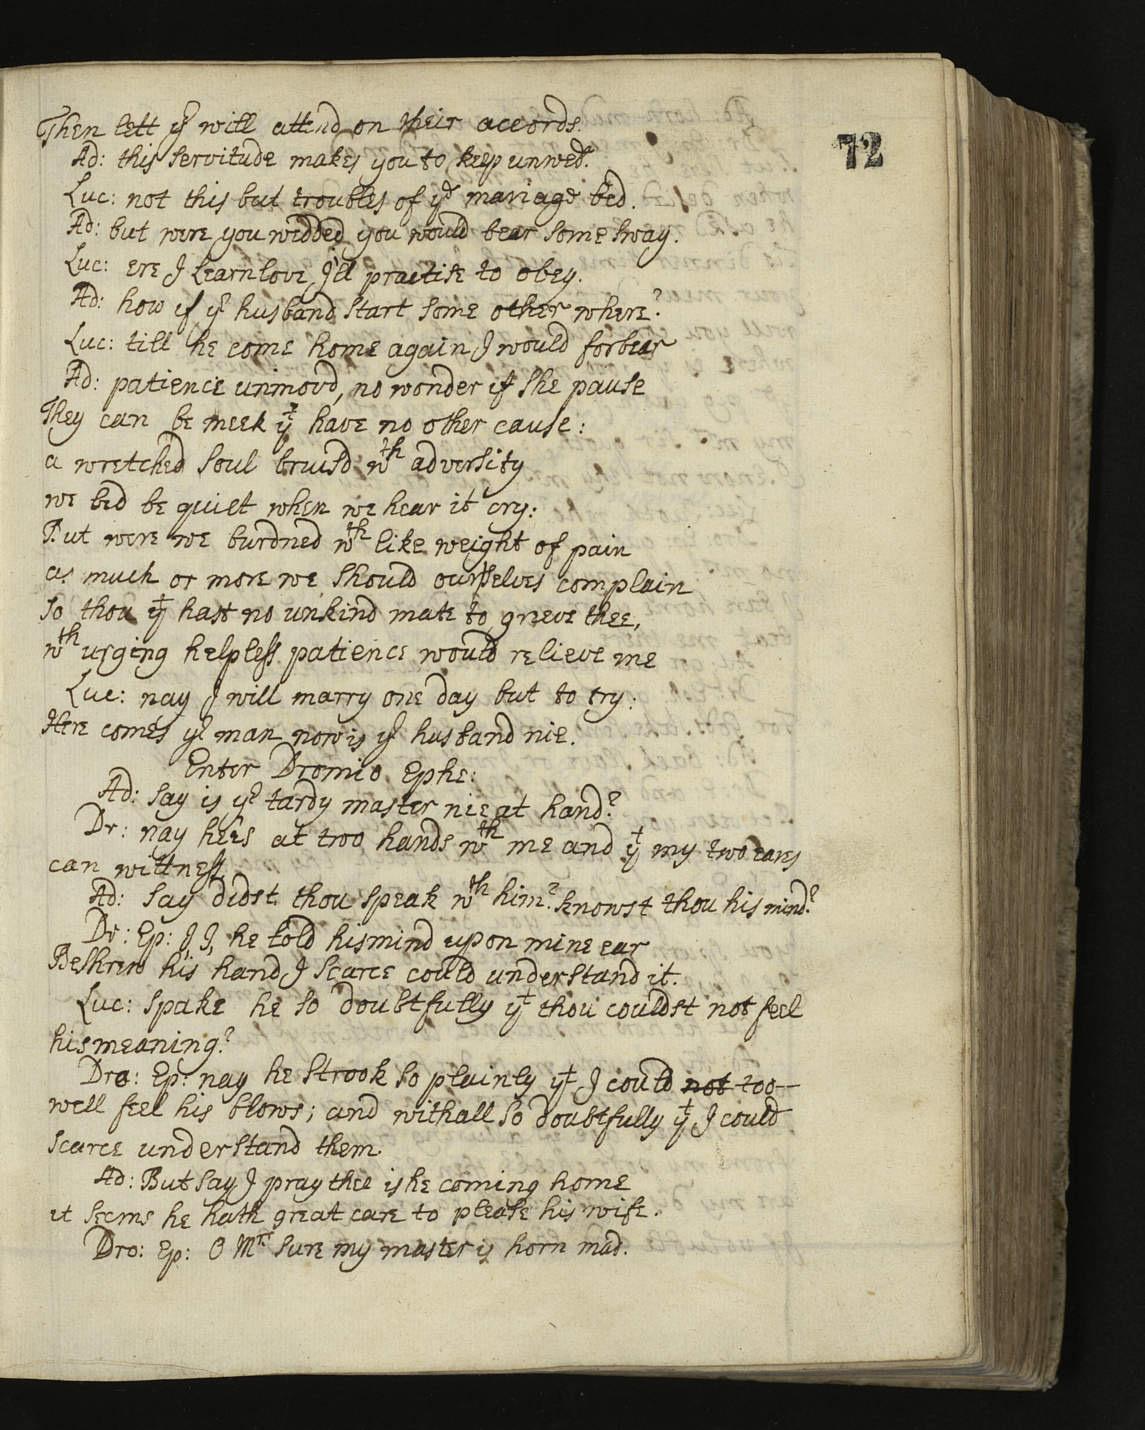 Then lett yr will attend on their accords.
72
Ad: this servitude makes you to keep unwed.
Luc: not this but troubles of ye mariage bed.
Ad: but were you wedded you would bear some sway.
Luc: ere I learn love I'll practise to obey.
Ad: how if yr husband start some other where?
Luc: till he come home again I would forbear
Ad: patience unmovd, no wonder if she pause
They can be meek yt have no other cause:
a wretched soul bruisd wth adversity
we bid be quiet when we hear it cry:
But were we burdned wth like weight of pain
as much or more we should ourselves complain
so thou yt hast no unkind mate to grieve thee,
wth urging helpless patience would relieve me
Luc: nay I will marry one day but to try:
Here comes yr man now is yr husband nie.
Enter Dromio Ephe:
Ad: say is yr tardy master nie at hand?
Dr: nay hees at two hands wth me and yt my two ears
can wittness
Ad: say didst thou speak wth him? knowst thou his mind?
Dr: Ep: I I, he told his mind upon mine ear
Beshrew his hand I scarce could understand it.
Luc: spake he so doubtfully yt thou couldst not feel
his meaning?
Dro: Ep: nay he strook so plainly yt I could not too
well feel his blows; and withall so doubtfully yt I could
scarce understand them
Ad: But say I pray thee is he coming home
it seems he hath great care to please his wife.
Dro: Ep: O Mrs sure my master is horn mad.